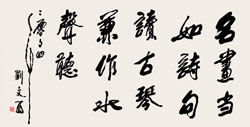 名畫當
如詩句
讀古琴
兼作水
聲聽
劉文西